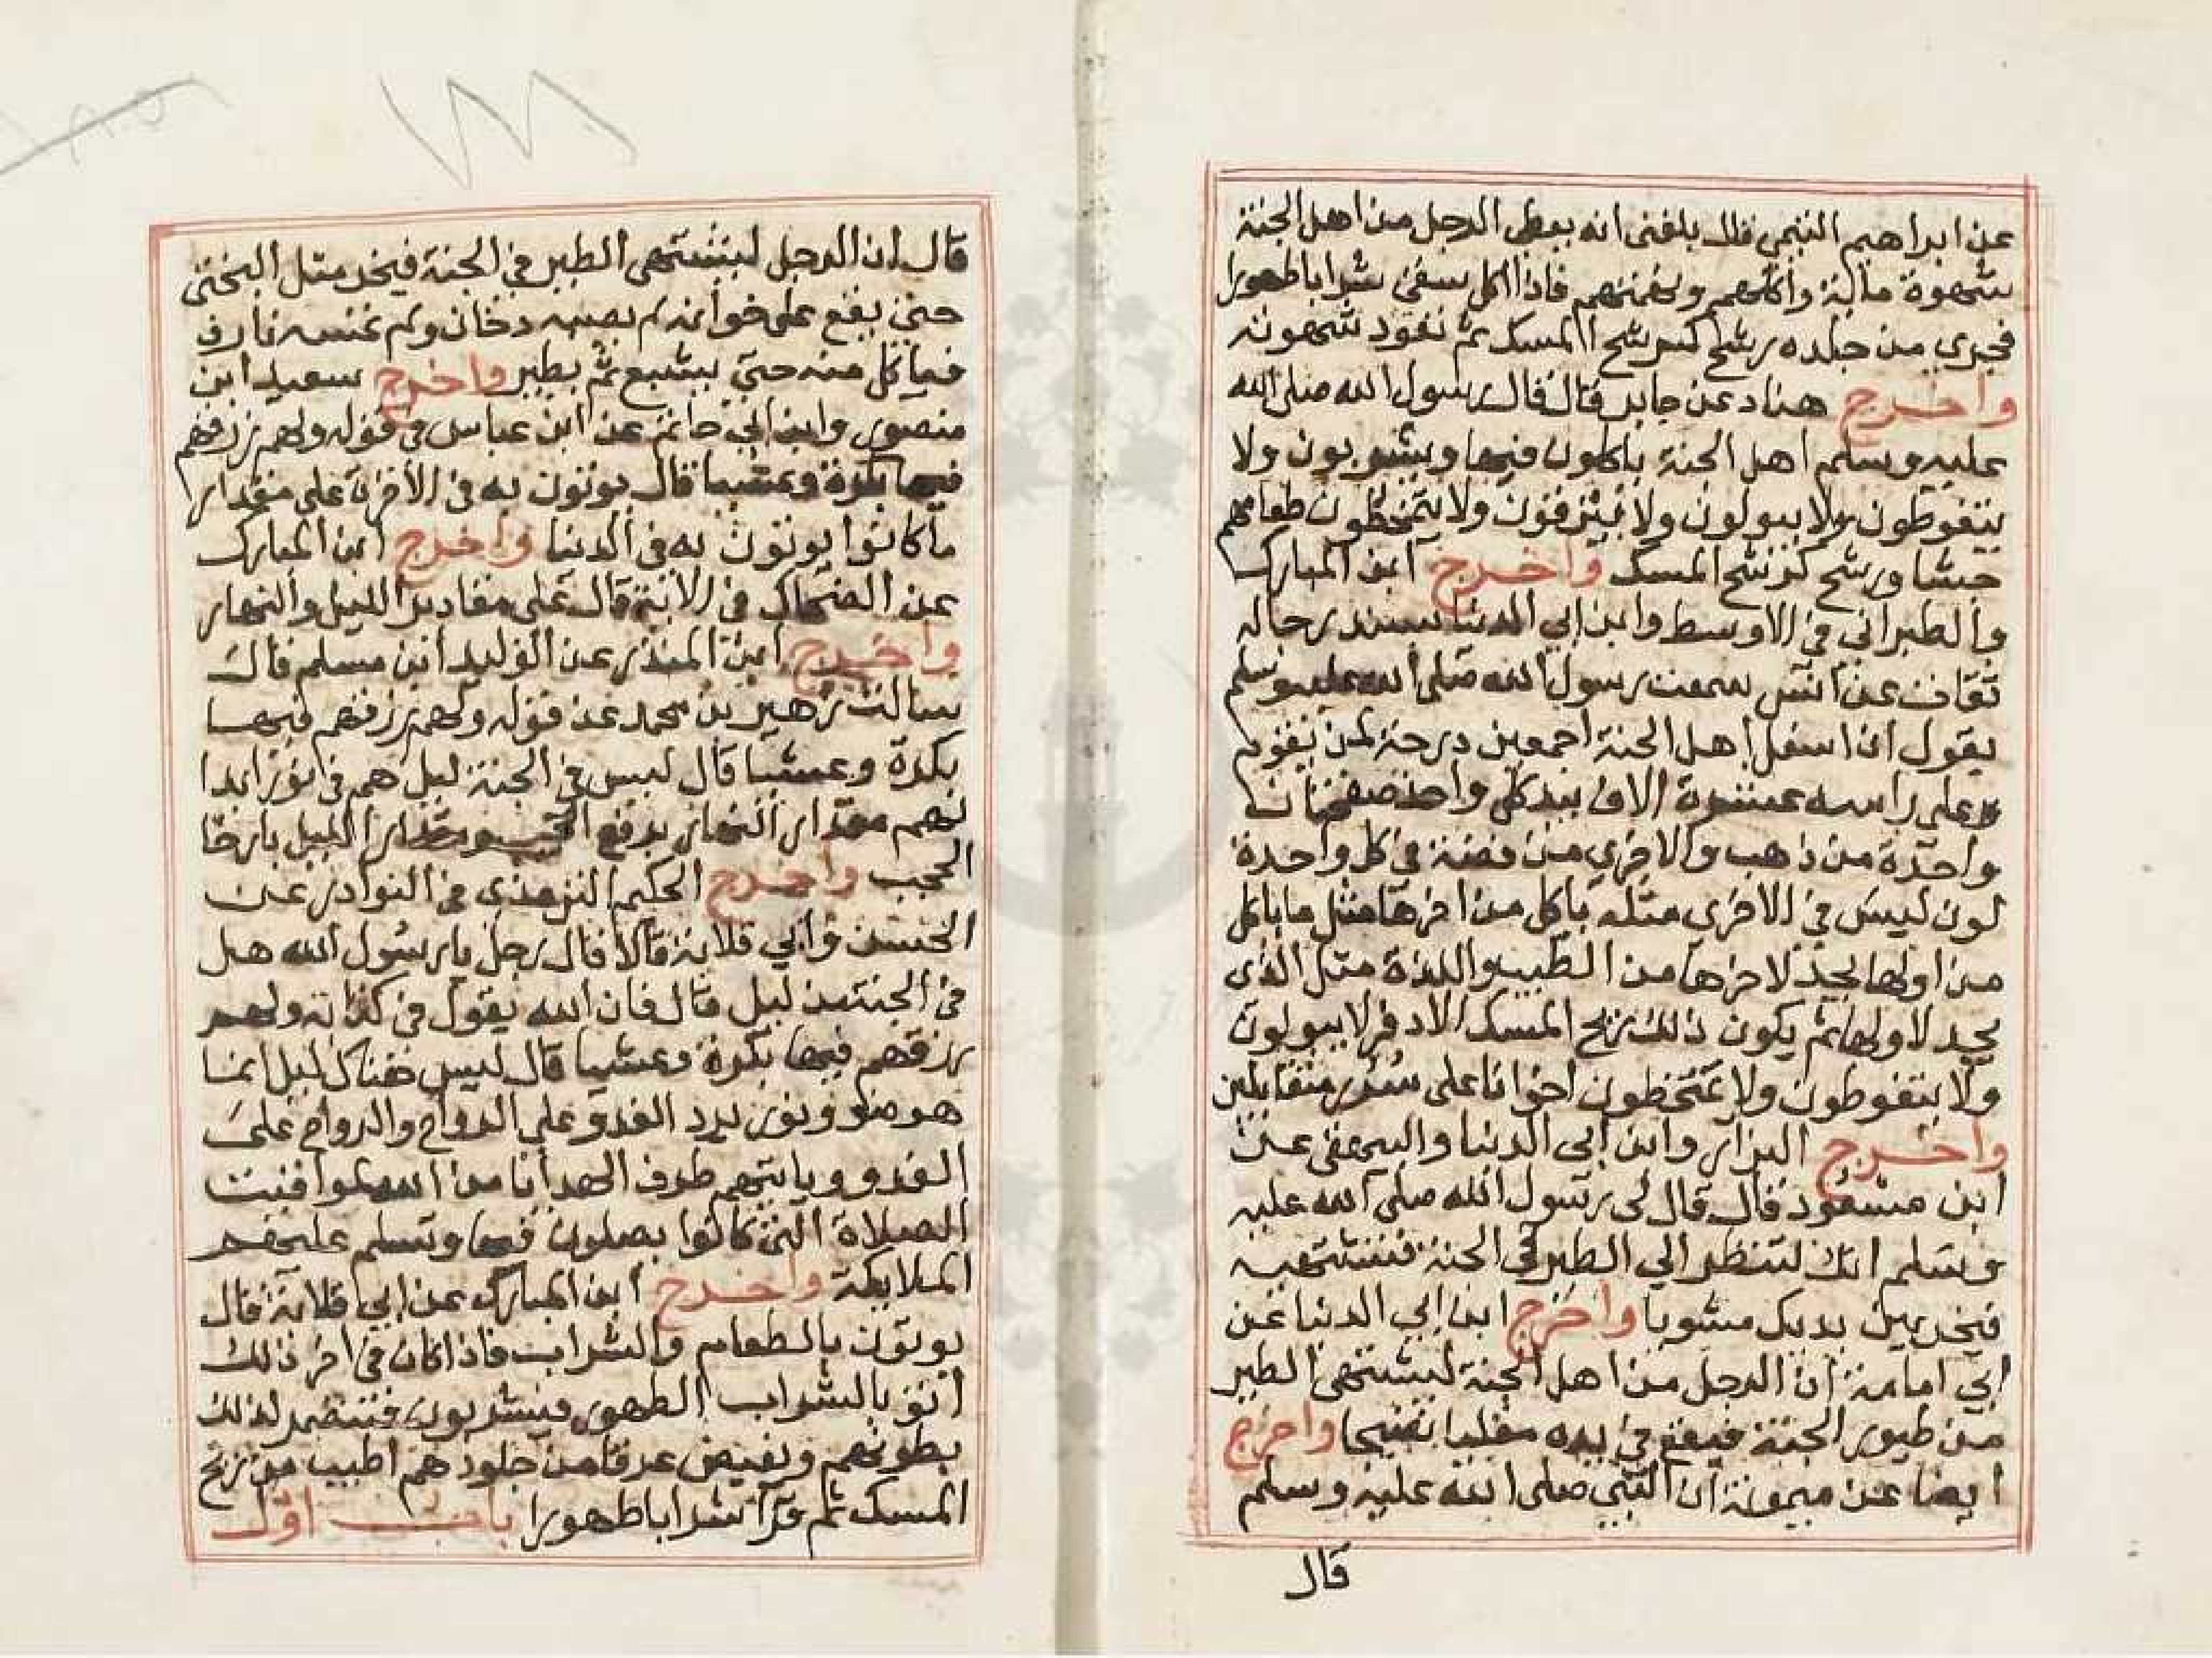 عن ابراهيم التيمي قال بلغني انه يعطي الرجل من اهل الجنة
شهوة ماية واكلهم ونهمتهم فاذا اكل سقي شرابا طهورا
فيجري من جلده رشح كرشح المسك ثم تعود شهوته
واخرج هناد عن جابر قال قال رسول الله صلى الله
عليه وسلم اهل الجنة ياكلون فيها ويشربون ولا
يتغوطون ولا يبولون ولا يبزقون ولا يتمخطون طعامهم
جشا ورشح كرشح المسك واخرج ابن المبارك
والطبراني في الاوسط وابن ابي الدنيا بسند رجاله
ثقات عن انس سمعت رسول الله صلى الله عليه وسلم
يقول ان اسفل اهل الجنة اجمعين درجة لمن يقوم
على راسه عشرة الاف بيد كل واحد صفحتان
واحدة من ذهب والاخري من فضة في كل واحدة
لون ليس في الاخري مثله ياكل من اخرها مثل ما ياكل
من اولها يجد لاخرها من الطيب واللذة مثل الذي
يجد لاولها ثم يكون ذلك ريح المسك الادفر لا يبولون
ولا يتغوطون ولا يمتخطون اخوانا على سرر متقابلين
واخرج البزار وابن ابي الدنيا والبيهقي عن
ابن مسعود قال قال لي رسول الله صلى الله عليه
وسلم انك لتنظر الي الطير في الجنة فتشتهيه
فيخر بين يديك مشويا واخرج ابن ابي الدنيا عن
ابي امامة ان الرجل من اهل الجنة ليشتهي الطير
من طيور الجنة فيقع في يده مقليا نضيجا واخرج
ايضا عن ميمونة ان النبي صلى الله عليه وسلم
قال
قال ان الرجل ليشتهي الطير في الجنة فيخر مثل البختي
حتي يقع على خوانه لم يصبه دخان ولم تمسه نار
فياكل منه حتي يشبع ثم يطير واخرج سعيد ابن
منصور وابن ابي حاتم عن ابن عباس في قوله ولهم رزقهم
فيها بكرة وعشيا قال يوتون به في الاخرة على مقدار
ما كانوا يوتون به في الدنيا واخرج ابن المبارك
عن الضحاك في الاية قال على مقادير الليل والنهار
واخرج ابن المنذر عن الوليد ابن مسلم قال
سالت زهير بن محمد عن قوله ولهم رزقهم فيها
بكرة وعشيا قال ليس في الجنة ليل هم في نور ابدا
لهم مقدار النهار يرفع الحجب ومقدار الليل بارخا
الحجب واخرج الحكيم الترمذي في النوادر عن
الحسن وابي قلابة قالا قال رجل يا رسول الله هل
في الجنة من ليل قال فان الله يقول في كتابه ولهم
رزقهم فيها بكرة وعشيا قال ليس هناك ليل انما
هو ضو ونور يرد الغدو على الرواح والرواح على
الغدو وياتيهم طرف الهدايا من الله لمواقيت
الصلاة التي كانوا يصلون فيها وتسلم عليهم
الملايكة واخرج ابن المبارك عن ابي قلابة قال
يوتون بالطعام والشراب فاذا كان في اخر ذلك
اتو بالشراب الطهور فيشربون فتضمر لذلك
بطونهم وتفيض عرقا من جلودهم اطيب من ريح
المسك ثم قرا شرابا طهورا باب اول